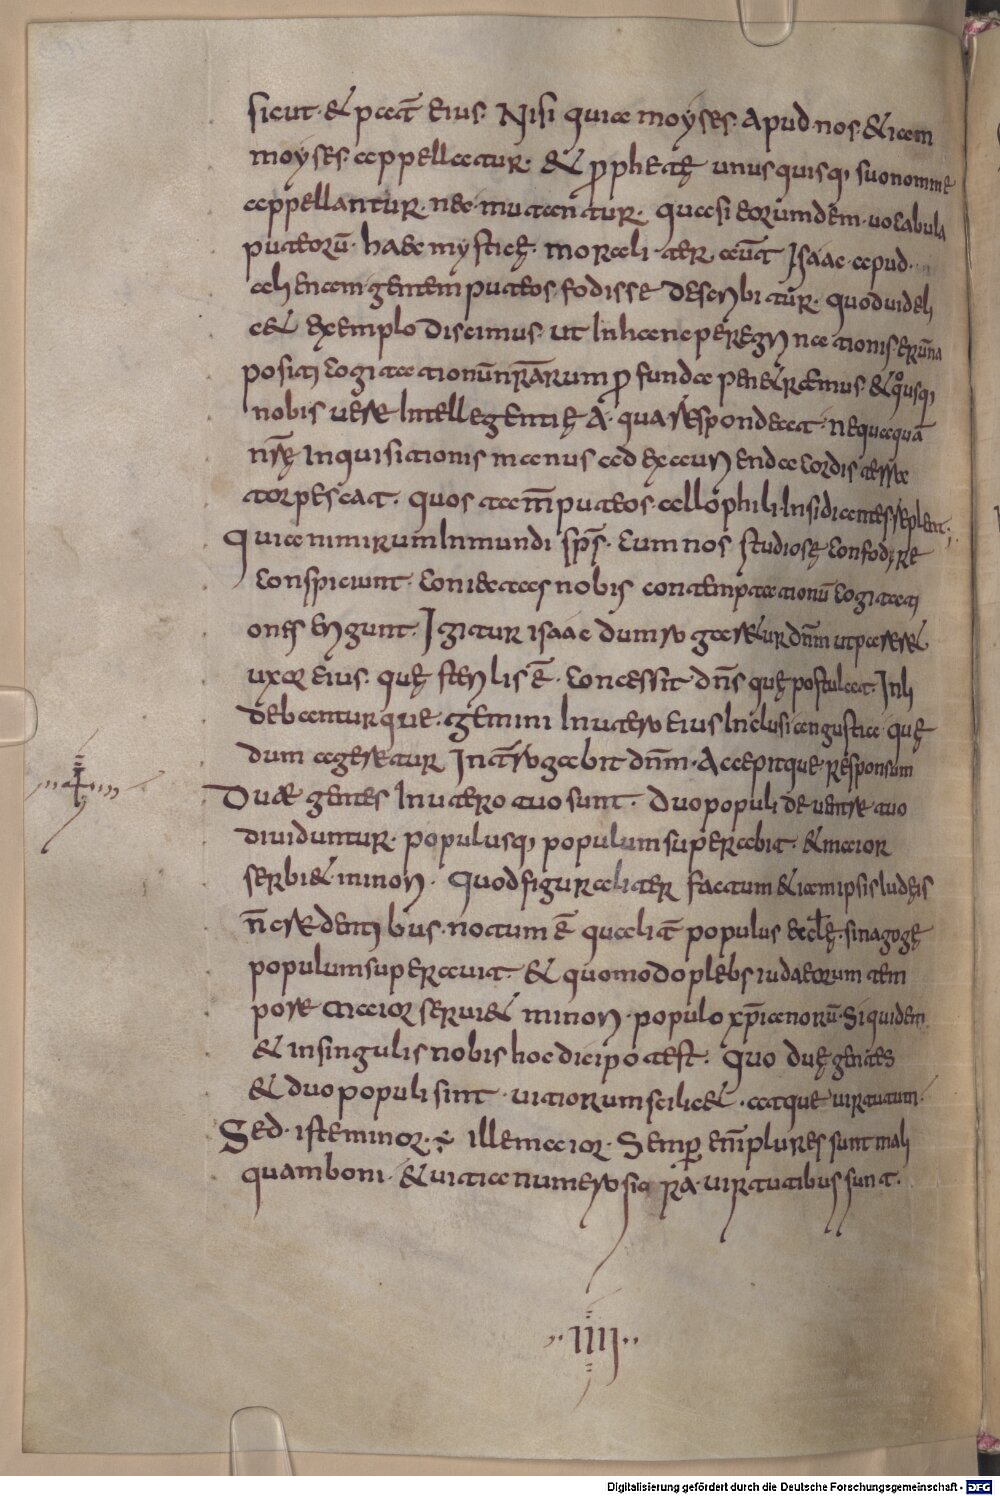 sicut · & pcat̄ eius · Nisi quia moyses · apud nos · & iam
moyses · appellatur · & p̱rophetę unusquisq; suo nomine
appellantur · nec mutantur · quasi eorumdem · uocabula
puteorū · haec mysticę · morali · ter , aut̄ Isaac · apud ·
alienam gentem puteos · fodisse describitur · quod uideli
c& exemplo discimus · ut In hac peregrinationis · erūna
positi cogitationū nr̄arum p̱ funda penetremus & quo usq;
nobis uere Intellegentię A · qua respondeat · nequaquā
nr̄ę Inquisitionis manus ad exaurienda cordis terra
torpescat · quos tam̄ puteos · allophili · Insidiantes replent ;
Quia nimirum Inmundi sp̄s · cum nos studiosę confodire
conspiciunt · congestas nobis contemptationū cogitati
ones Ingerunt · Igitur isaac dum rogar& ur dn̄m ut parer&
uxor eius · quę sterilis ē · concessit · dn̄s quę postulat · Inli
debantur que · gemini In utero eius Inclusi angustia quę
dum ageretur Int̄rogabit dn̄m · Accepitque · responsum
Duae gentes In utero tuo sunt · duo populi de uentre tuo
diuiduntur · populusq; populum superabit · & maior
serbi& · minori · Quod figuraliter factum & iam ipsis Iudeis
n̄ credentibus · notum ē qualit̄ populus eccl̄ę · sinagogę
populum superauit · & quomodo plebs iudaeorum tem
pore maior serui& minori · populo xp̄ianorū · Siquidem
& in singulis nobis hoc dici potest · Quo duę gentes
& duo populi sint · uitiorum scilic& · atque uirtutum ·
Sed · iste minor · ÷ ille maior · Semper enim̄ plures sunt mali
quam boni · & uitia numerosiora · uirtutibus sunt ·
·· IIII ··
Digitalisierung gefördert durch die Deutsche Forschungsgemeinschaft - DFG